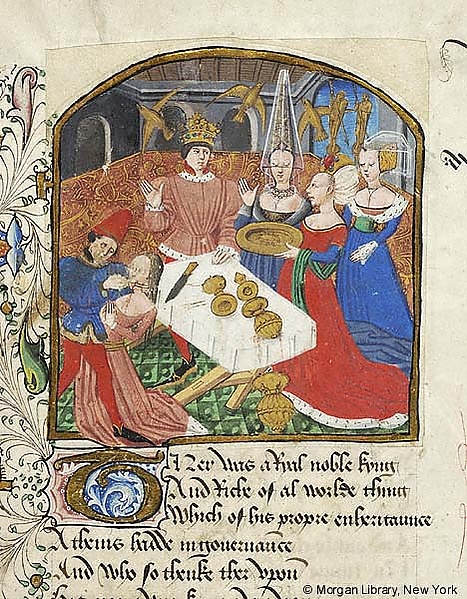 Ther was a Rial noble kyng
And Riche of al worlde thing
Which of his propre enheritaunce
Athenis hadde in gouernance
And who so thenke ther vpon
© Morgan Library, New York